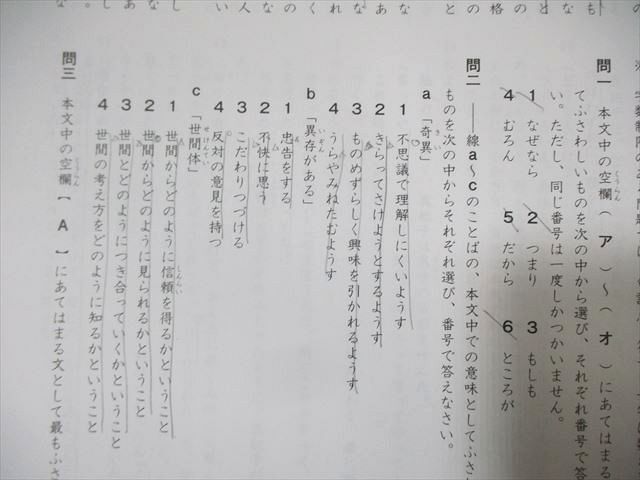 問一 本文中の空欄（ ア ）～（ オ ）にあてはまる
てふさわしいものを次の中から選び、それぞれ番号で答
い。ただし、同じ番号は一度しかつかいません。
1 なぜなら 2 つまり 3 もしも
4 むろん 5 だから 6 ところが
問二 ――線a～cのことばの、本文中での意味としてふさ
ものを次の中からそれぞれ選び、番号で答えなさい。
a 「奇異」
1 不思議で理解しにくいようす
2 きらってさけようとするようす
3 ものめずらしく興味を引かれるようす
4 うらやみねたむようす
b 「異存がある」
1 忠告をする
2 不快に思う
3 こだわりつづける
4 反対の意見を持つ
c 「世間体」
1 世間からどのように信頼を得るかということ
2 世間からどのように見られるかということ
3 世間とどのようにつき合っていくかということ
4 世間の考え方をどのように知るかということ
問三 本文中の空欄［ A ］にあてはまる文として最もふさ